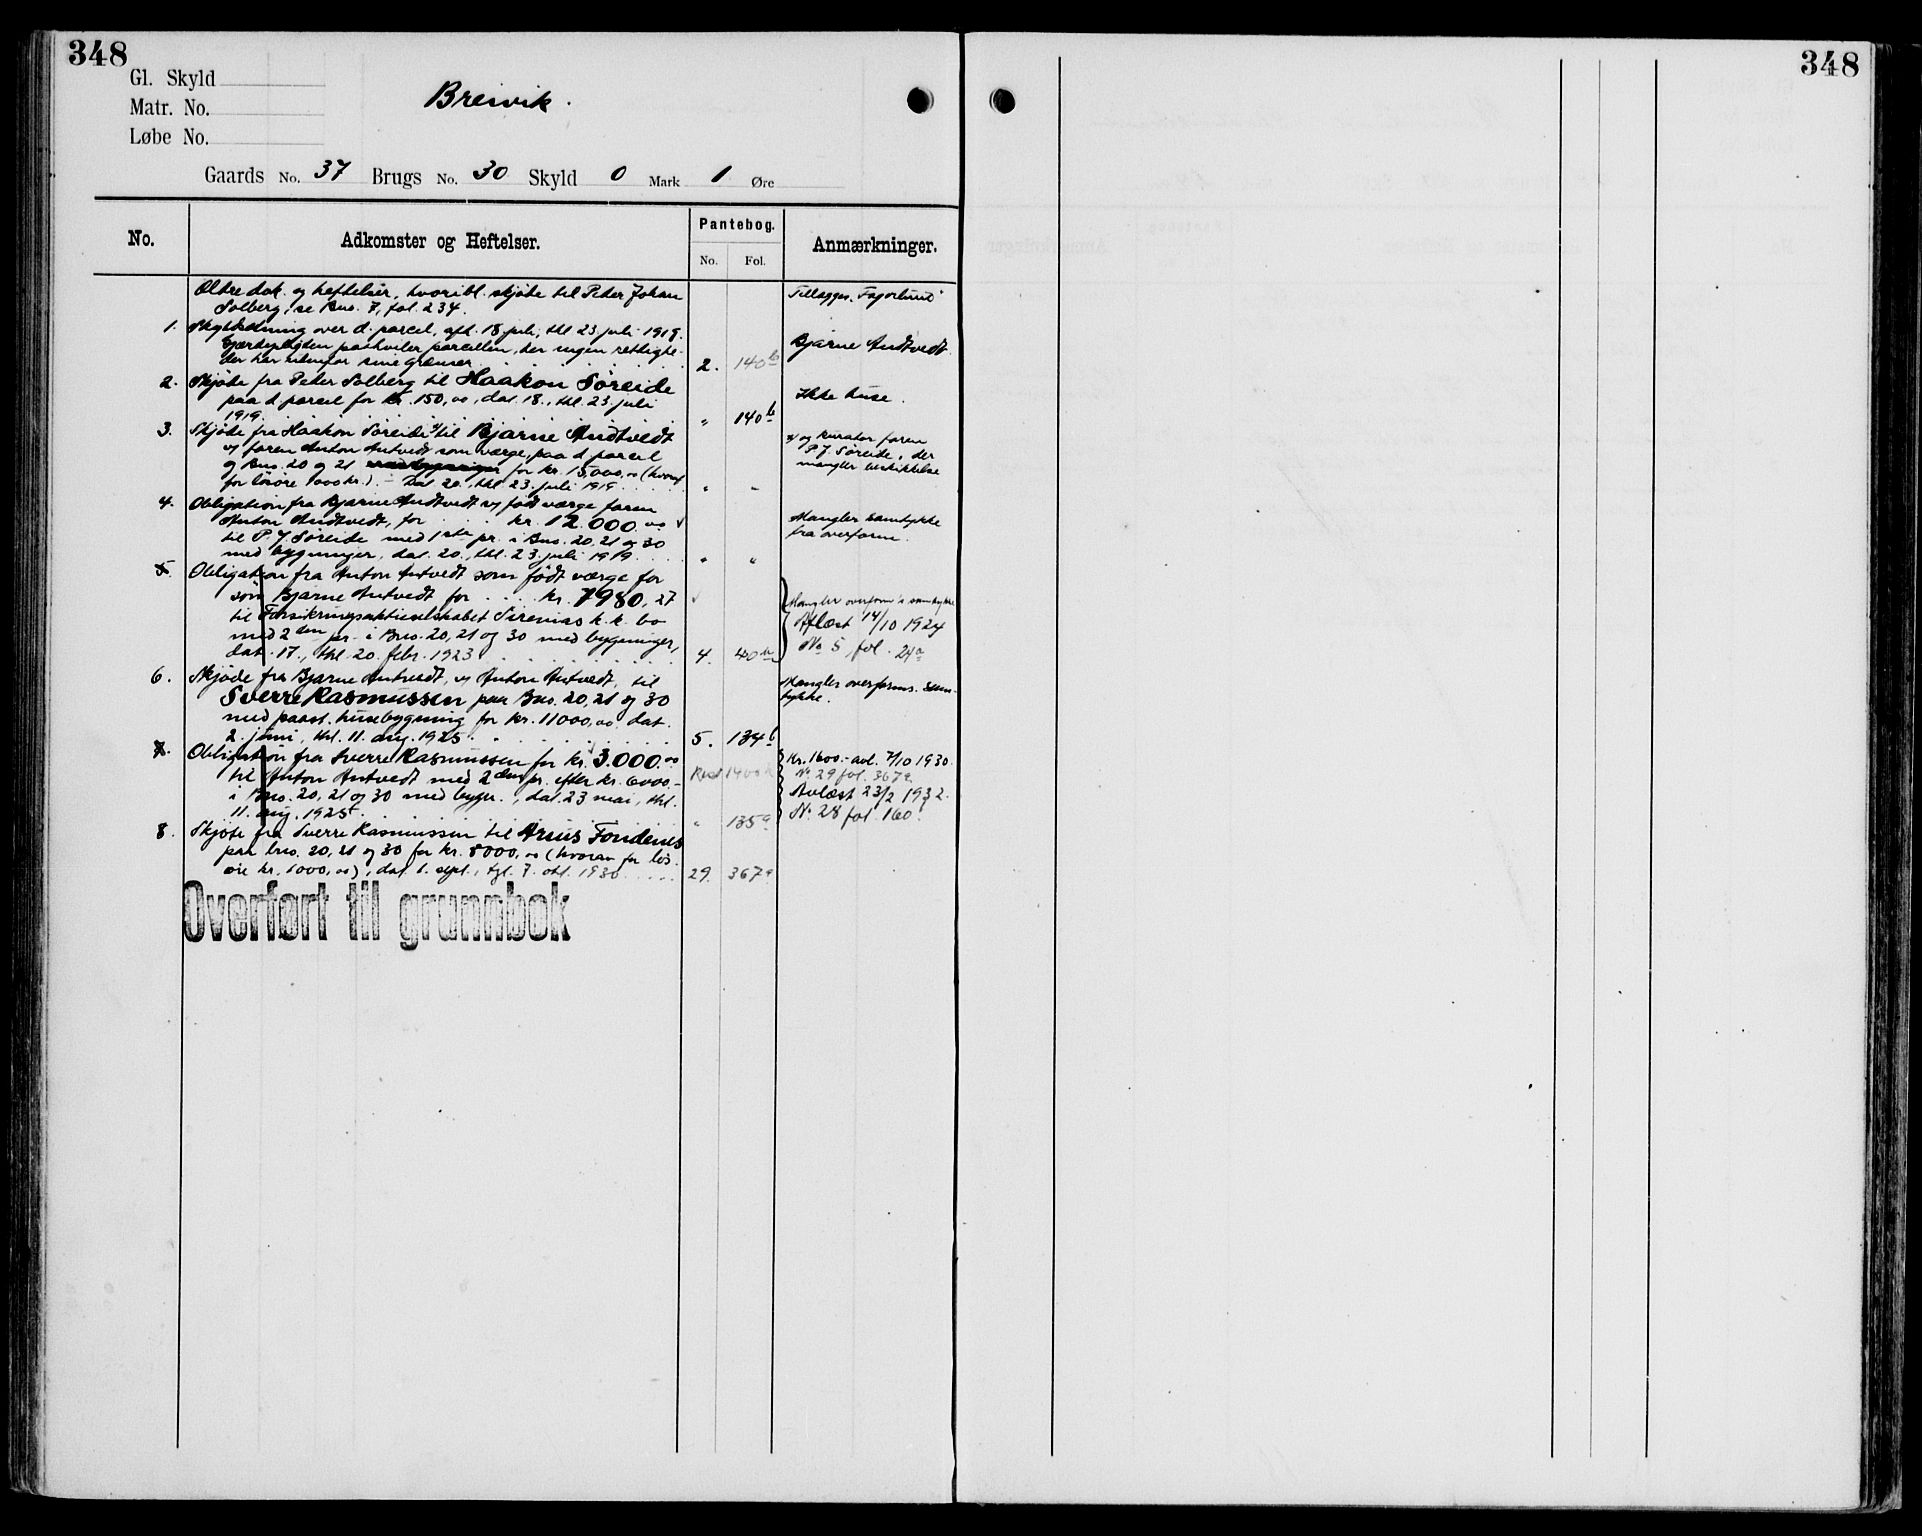 348
348
Gl. Skyld
Matr. No.
Løbe No.
Breivik.
Gaards No. 37 Brugs No. 30 Skyld 0 Mark 1 Øre
No.
Adkomster og Heftelser.
Pantebog.
No. Fol.
Anmærkninger.
Ældre dok. og heftelser, hvoribl. skjøte til Peter Johan
Solberg, se Bno. 7, fol. 234.
Tillægges
1. Skyldeling over d. parcel, afh. 18. juli, thl. 23. juli 1919.
Gjerdepligten paahviler parcellen, der ingen rettighe-
der har utenfor sine grænser 2. 140 b
Bjarne Antvedt
2. Skjøte fra Peter Solberg til Haakon Søreide
paa d. parcel for kr. 150,00, dat. 18., thl. 23. juli
1919. " 140 b
Ikke huse.
3. Skjøte fra Haakon Søreide x) til Bjarne Antvedt
v/ faren Anton Antvedt som værge, paa d. parcel
og Bno. 20 og 21 for kr. 15,000,00 (hvoraf
for løsøre 1000 kr.). - Dat. 20., thl. 23. juli 1919 " "
x) og kurator faren
P. J. Søreide, der
mangler beskikkelse
4. Obligation fra Bjarne Antvedt v/ født værge faren
Anton Antvedt, for kr. 12.000.00
til P. J. Søreide med 1ste pr. i Bno. 20, 21 og 30
med bygninger, dat. 20., thl. 23. juli 1919. " "
Mangler samtykke
fra overform.
5. Obligation fra Anton Antvedt som født værge for
søn Bjarne Antvedt for kr. 7980,27
til Forsikringsaktieselskabet Sirenias k.k. bo
med 2den pr. i Bno. 20, 21 og 30 med bygninger,
dat. 17., thl. 20. febr. 1923 4. 40
Mangler overform's samtykke
Aflæst 14/10 1924
No 5, fol. 24a
6. Skjøde fra Bjarne Antvedt, v/ Anton Antvedt, til
Sverre Rasmussen paa Bno. 20, 21 og 30
med paast. husebygning for kr. 11000,00 dat.
2. juni, thl. 11. aug. 1925 5. 134 b
Mangler overforms. sam-
tykke.
7. Obligation fra Sverre Rasmussen for kr. 3.000.00
til Anton Antvedt med 2den pr. efter kr. 6000.-
i Bno. 20, 21 og 30 med bygn., dat. 23 mai, thl.
11. aug. 1925. " 135 a
Rest 1400 kr
Kr. 1600.- avl. 7/10 1930.
No. 29 fol. 367a.
Avlæst 23/2 1932.
No. 28 fol. 160.
8. Skjøte fra Sverre Rasmussen til Arnis Fondenes
paa bno. 20, 21 og 30 for kr. 8000,00 (hvorav for løs-
øre kr. 1000,00), dat. 1. sept., tgl. 7. okt. 1930 29. 367a
Overført til grunnbok